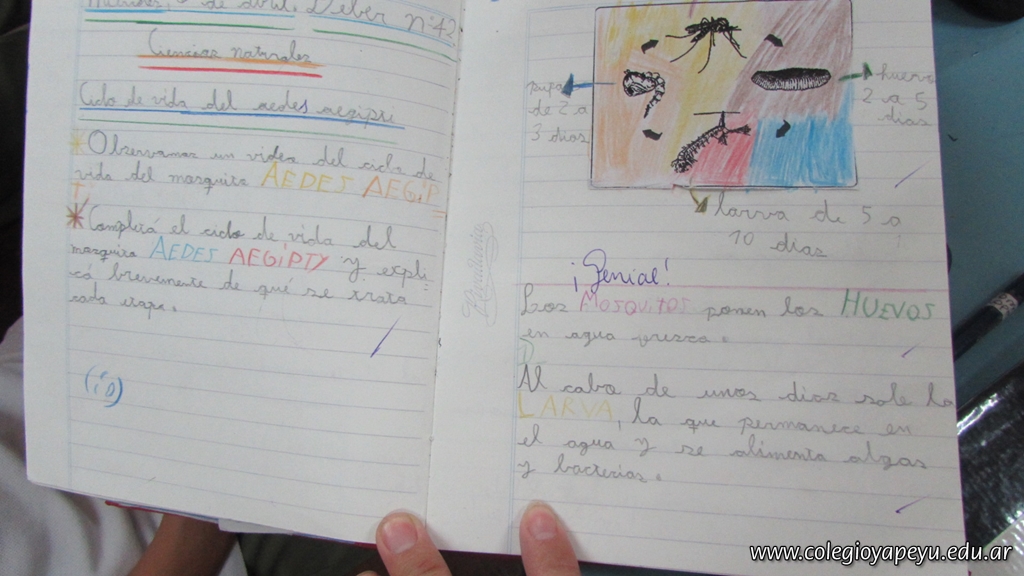 de abril. Deber n: 42
Ciencias naturales
Ciclo de vida del aedes aegipti
* Observamos un video del ciclo de
vida del mosquito AEDES AEGIP
* Completá el ciclo de vida del
mosquito AEDES AEGIPTY y expli-
cá brevemente de qué se trata
cada etapa.
pupa
de 2 a
3 dias
huevo
2 a 5
dias
larva de 5 a
10 dias
Rivadavia
¡Genial!
Los MOSQUITOS ponen los HUEVOS
en agua fresca.
Al cabo de unos dias sale la
LARVA, la que permanece en
el agua y se alimenta algas
y bacterias.
www.colegioyapeyu.edu.ar